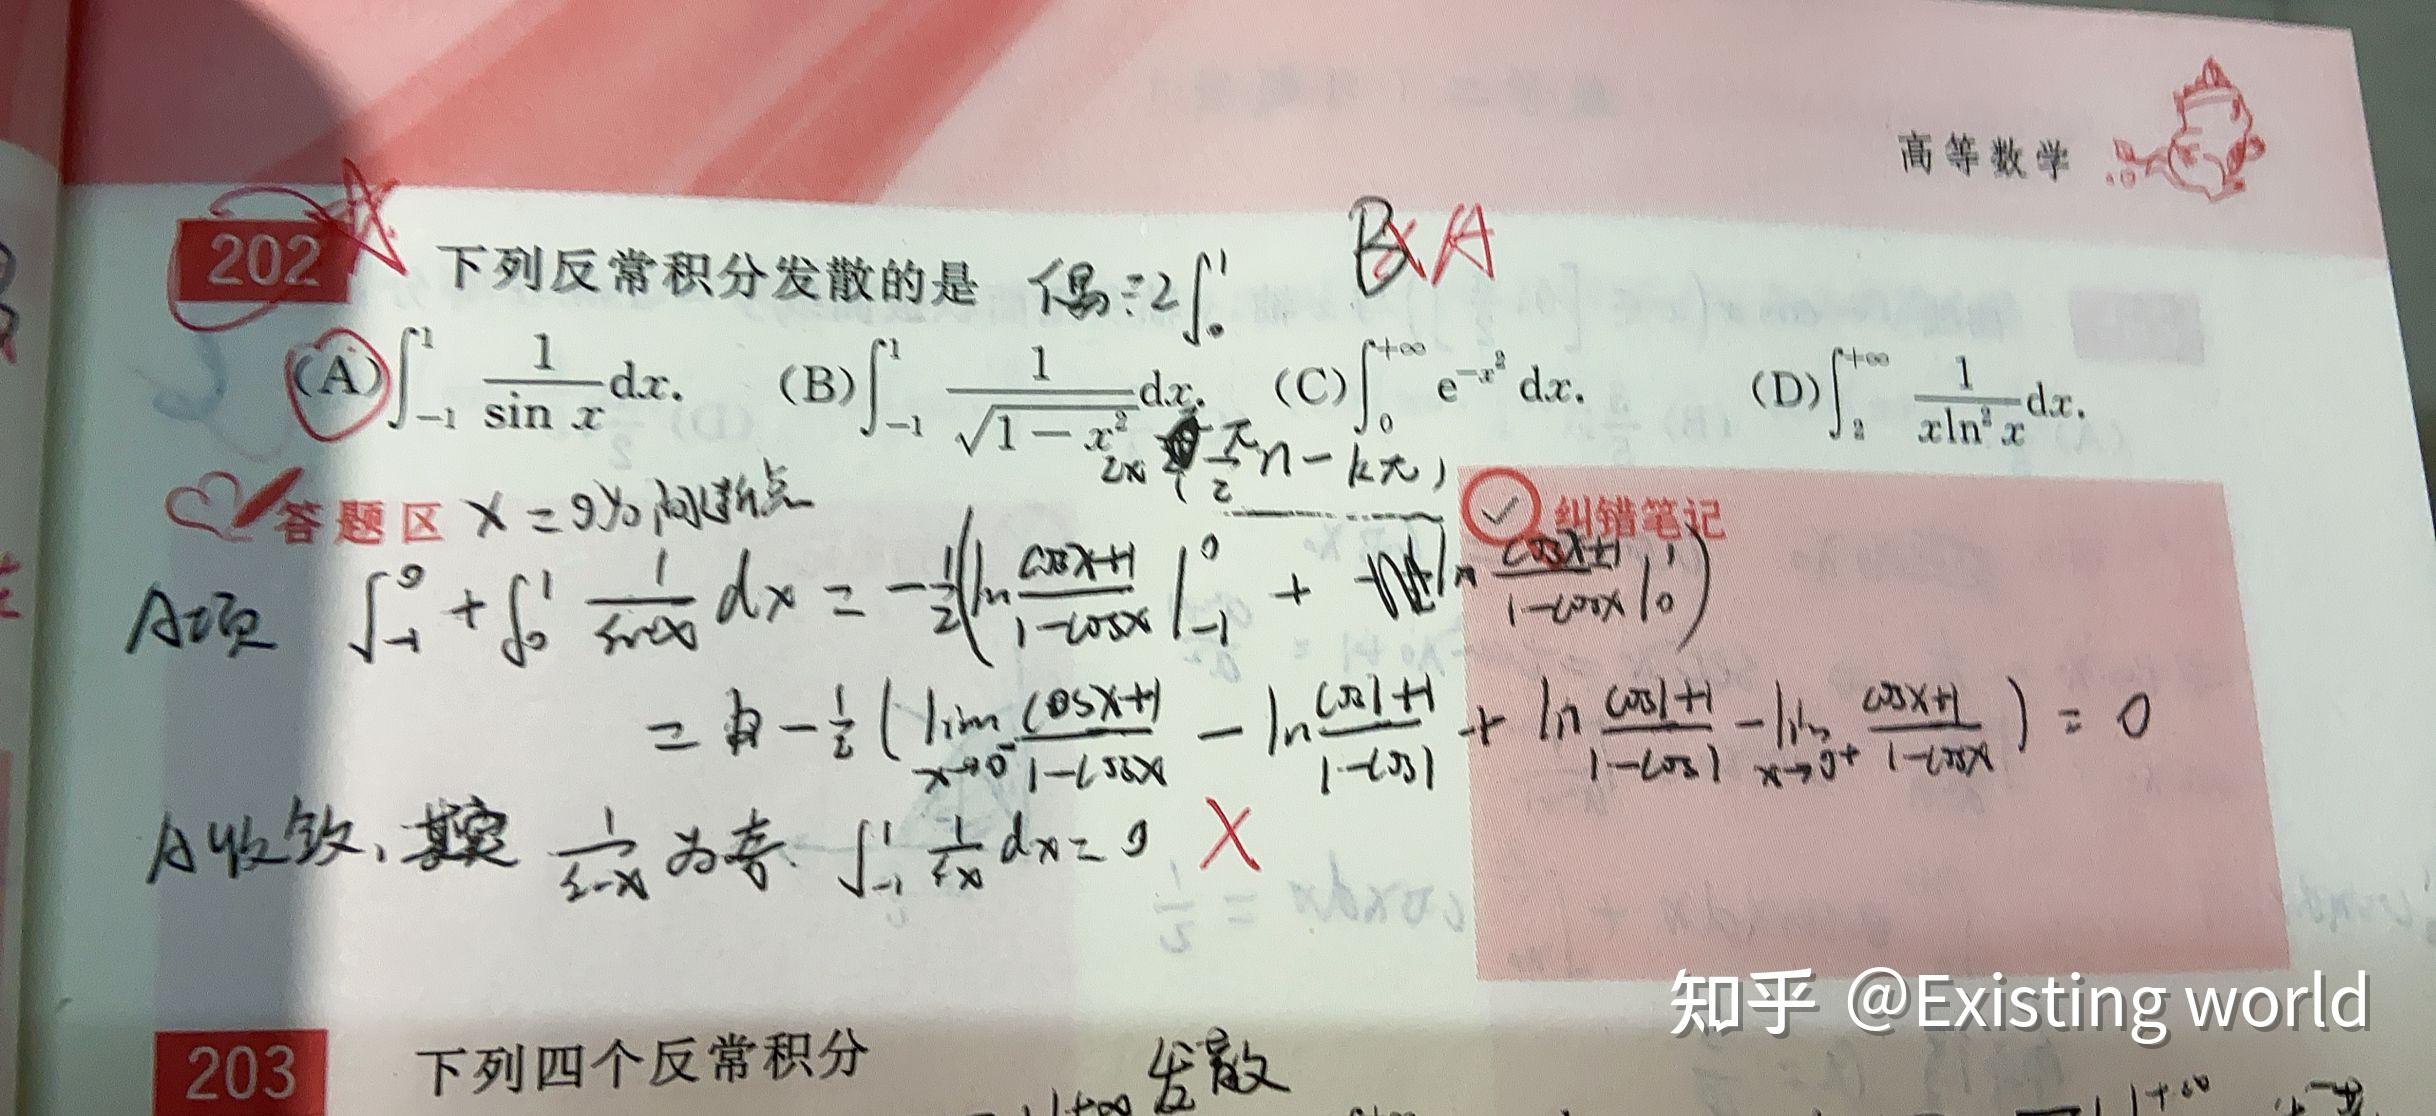 高等数学
B A
202 下列反常积分发散的是 偶=2∫₀¹
(A)∫₋₁¹ 1/sin x dx. (B)∫₋₁¹ 1/√(1-x²) dx. (C)∫₀^{+∞} e^{-x²} dx. (D)∫₂^{+∞} 1/(x ln² x) dx.
答题区 x=0为间断点
纠错笔记
A项 ∫₋₁⁰+∫₀¹ 1/sinx dx = -1/2(ln (cosx+1)/(1-cosx) |₋₁⁰ + ln (cosx+1)/(1-cosx) |₀¹)
= -1/2(lim_{x→0⁻} (cosx+1)/(1-cosx) - ln (cos1+1)/(1-cos1) + ln (cos1+1)/(1-cos1) - lim_{x→0⁺} (cosx+1)/(1-cosx)) = 0
A收敛, 其实 1/sinx 为奇. ∫₋₁¹ 1/sinx dx=0 X
知乎 @Existing world
203 下列四个反常积分
发散